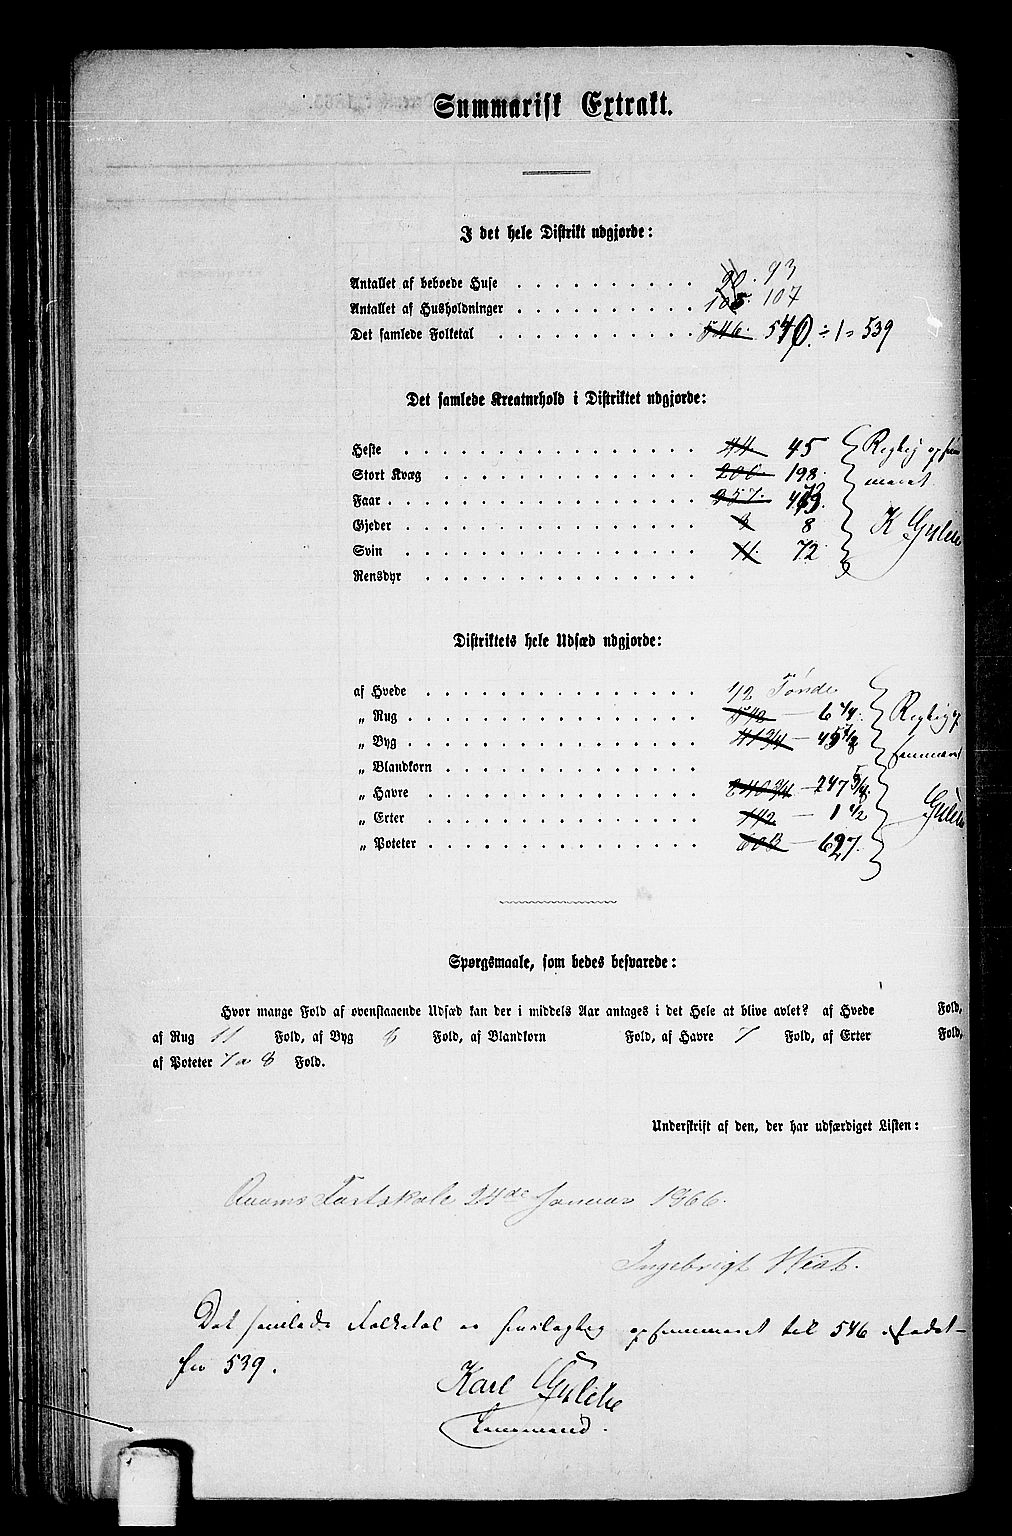 Summarisk Extrakt.
I det hele Distrikt udgjorde:
Antallet af beboede Huse . . . . . . . . . . 90. 93
Antallet af Husholdninger . . . . . . . . . . 105. 107
Det samlede Folketal . . . . . . . . . . . 546. 540 ÷ 1 = 539
Det samlede Kreaturhold i Distriktet udgjorde:
Heste . . . . . . . . . . . . 44 45
Stort Kvæg . . . . . . . . . . 200 198
Faar . . . . . . . . . . . . 357.
Gjeder . . . . . . . . . . . . 3 8
Svin . . . . . . . . . . . . 11. 72
Rensdyr . . . . . . . . . . .
K Gylche
Distriktets hele Udsæd udgjorde:
af Hvede . . . . . . . . . . . 1/2 Tønde
„ Rug . . . . . . . . . . . . 5 1/2 — 6 1/4.
„ Byg . . . . . . . . . . . . 41 3/4 —
„ Blandkorn . . . . . . . . . .
„ Havre . . . . . . . . . . . 240 3/4 — 247
„ Erter . . . . . . . . . . . 1 1/2 — 1 1/2
„ Poteter . . . . . . . . . . . 603 — 627.
Spørgsmaale, som bedes besvarede:
Hvor mange Fold af ovenstaaende Udsæd kan der i middels Aar antages i det Hele at blive avlet? af Hvede Fold,
af Rug 11 Fold, af Byg 8 Fold, af Blandkorn Fold, af Havre 7 Fold, af Erter Fold,
af Poteter 7 a 8 Fold.
Underskrift af den, der har udfærdiget Listen:
Fastskole 24de Januar 1866.
Ingebrigt
Det samlede Folketal er feilagtig opsummeret til 546 istedet-
for 539.
Karl Gylche
Lensmand.